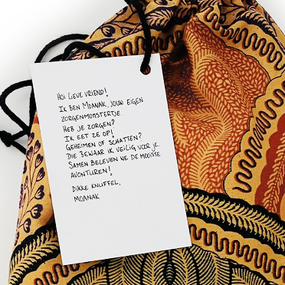 Hoi lieve vriend!
Ik ben Moanak, jouw eigen
zorgenmonstertje.
Heb je zorgen?
Ik eet ze op!
Geheimen of schatten?
Die bewaar ik veilig voor je
Samen beleven we de mooiste
avonturen!
Dikke knuffel,
Moanak